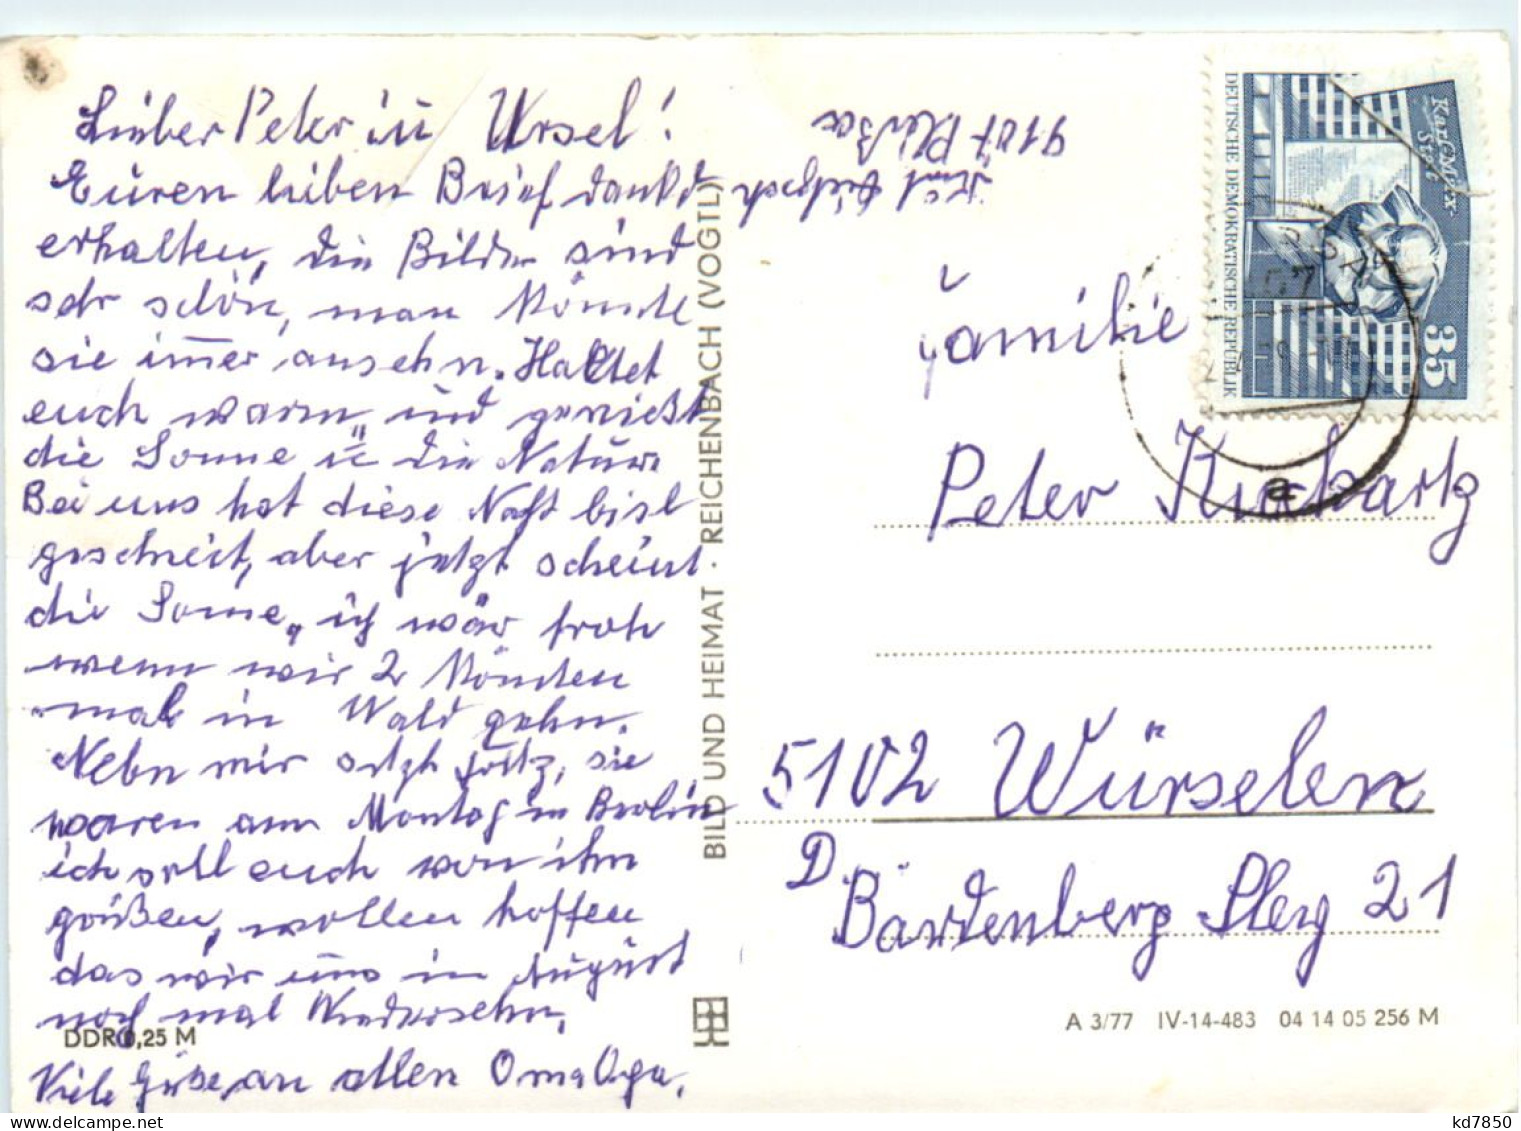 Lieber Peter u Ursel!
Euren lieben Brief dankd
erhalten, die Bilder sind
sehr schön, man könnte
sie immer ansehn. Haltet
euch warm, und genießt
die Sonne u die Natur
Bei uns hat diese Nacht bisl
geschneit, aber jetzt scheint
die Sonne, ich wär froh
wenn wir 2 könnten
mal in Wald gehn.
Nebn mir sitzt Fritz, sie
waren am Montag in Berlin
ich soll euch von ihm
grüßen, wollen hoffen
das wir uns in August
noch mal Wiedersehn.
DDR 0,25 M
Viele Grüße, an allen Oma Olga.
BILD UND HEIMAT · REICHENBACH (VOGTL)
9107
DEUTSCHE DEMOKRATISCHE REPUBLIK
Karl-Marx-
Stadt
35
a
Familie
Peter
5102 Würselen
D.
Bardenberg 21
A 3/77 IV-14-483 04 14 05 256 M
kd7850